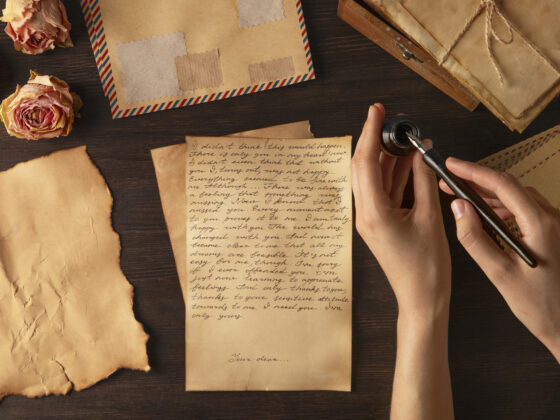 I didn't think this would happen.
There is only you in my heart now.
I didn't even think that without
you I, turns out, was not happy.
Everything seemed to be fine with
me. Although... There was always
a feeling that something was
missing. Now I know that I
missed you. Every moment next
to you proves it to me. I am truly
happy with you. The world has
changed with you. And now it
became clear to me that all my
dreams are possible. It's not
easy for me, though. I'm sorry
if I ever offended you. I'm
just now learning to appreciate
feelings. And only thanks to you,
thanks to your sensitive attitude
towards to me. I need you. I'm
only yours.
Your dear...